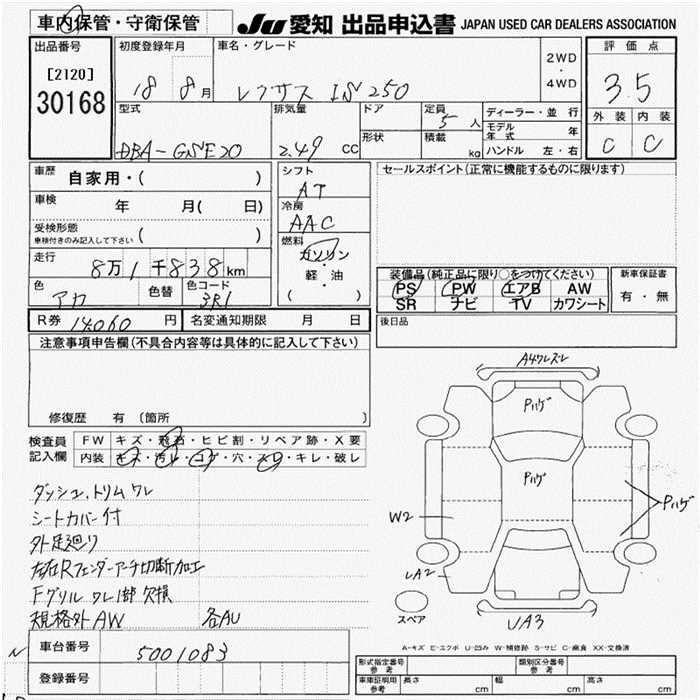 車内保管・守衛保管 JU 愛知 出品申込書 JAPAN USED CAR DEALERS ASSOCIATION
出品番号 初度登録年月 車名・グレード 2WD ・ 4WD 評価点
[2120]
30168 18 8月 レクサス IS 250 3.5
型式 排気量 ドア 定員 5人 ディーラー・並行 外装 内装
形状 積載 kg モデル年式 年
DBA-GSE20 2.49 CC ハンドル 左・右 C C
車歴 自家用・( ) シフト AT セールスポイント(正常に機能するものに限ります)
車検 年 月( 日) 冷房 AAC
受検形態 車検付きのみ記入して下さい ( ) 燃料 ガソリン ・ 軽・油 ( )
走行 8万1千838km 装備品(純正品に限り○をつけてください) 新車保証書
色 アカ 色替 色コード 3R1 PS PW エアB AW 有・無
SR ナビ TV カワシート
R券 14060円 名変通知期限 月 日 後日品
注意事項申告欄(不具合内容等は具体的に記入して下さい)
修復歴 有 (箇所 )
検査員 FW キズ・飛石・ヒビ割・リペア跡・X要
記入欄 内装 キズ・汚レ・コゲ・穴・スレ・キレ・破レ
ダッシュ、トリムワレ
シートカバー付
外足廻り
左右Rフェンダーアーチ切断加工
Fグリル ワレ1部欠損
規格外AW 各AU
A4ワレズレ
Pハゲ
Pハゲ
Pハゲ
W2
UA2
UA3
スペア
A-キズ E-エクボ U-凹み W-補修跡 S-サビ C-腐食 XX-交換済
車台番号 5001083
登録番号
形式指定番号 参考 類別区分番号 参考
車庫証明用 参考 長さ cm 幅 cm 高さ cm